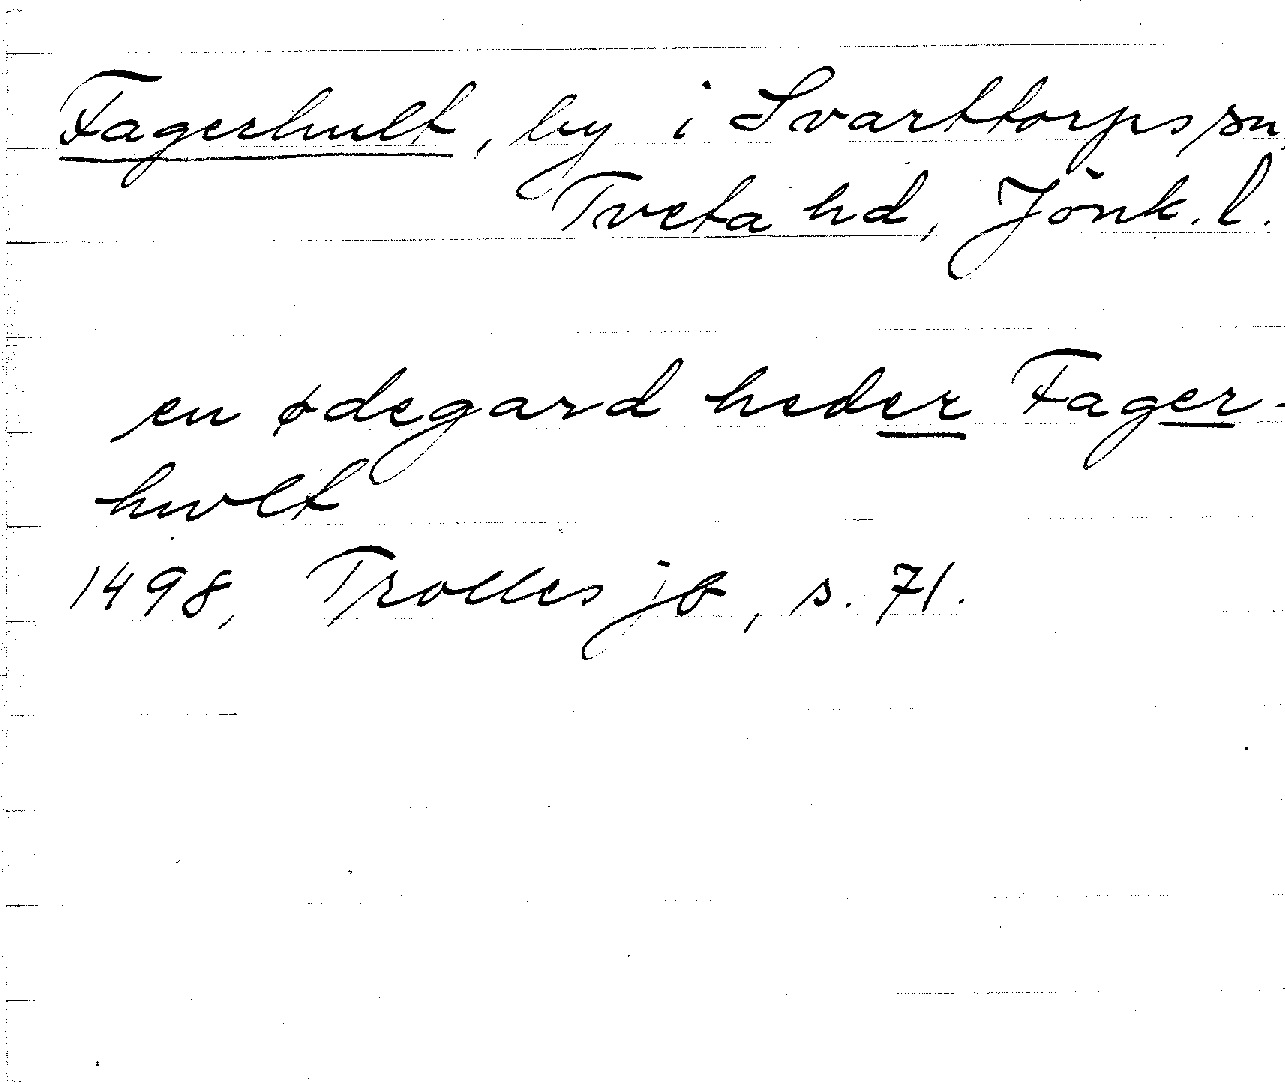 Fagerhult, by i Svarttorps sn,
Tveta hd, Jönk. l.
en ødegard heder Fager-
hwlt
1498, Trolles jb, s. 71.